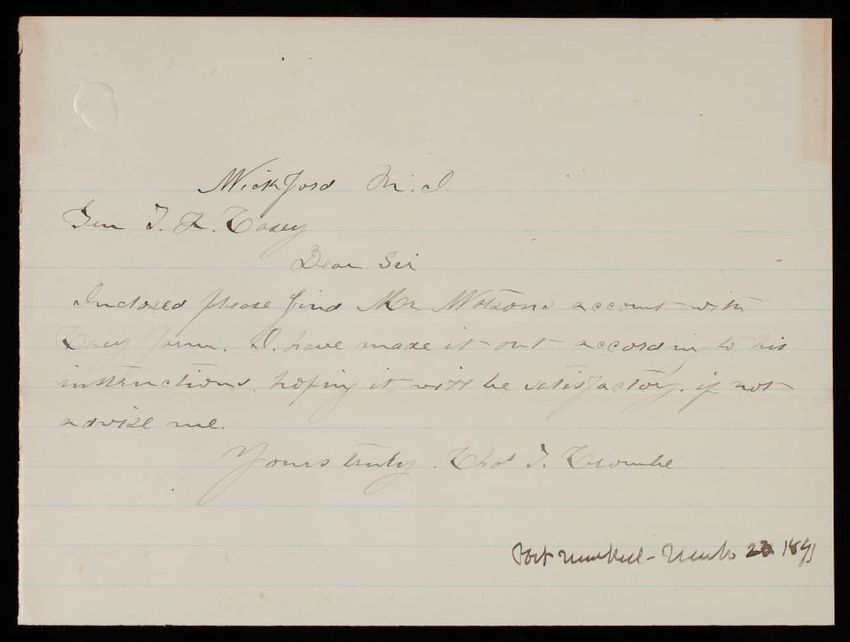 Wickford R. I.
Gen T. L. Casey
Dear Sir
Inclosed please find Mr Watsons account with
Casey Farm. I have made it out according to his
instructions, hoping it will be satisfactory. if not
advise me.
Yours truly. Chas T. Crombe
Post marked - March 20 1891